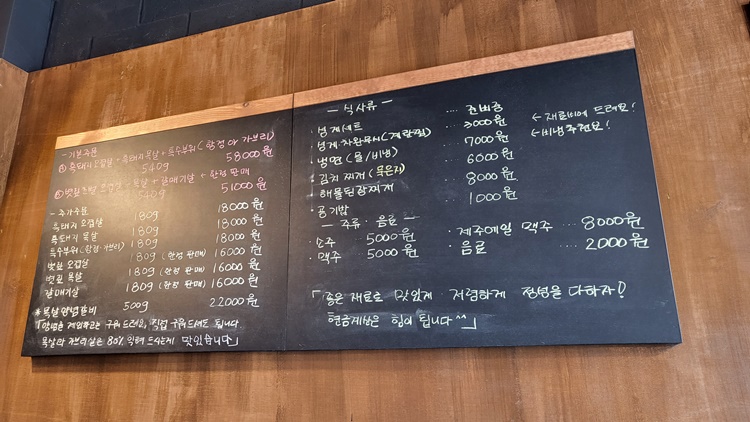 - 기본주문
① 흑돼지오겹살 + 흑돼지목살 + 특수부위 (항정 or 가브리)
540g 58000원
② 오겹살 + 목살 + 갈매기살 + 한정 판매
540g 51000원
- 추가주문
흑돼지 오겹살 180g 18000원
흑돼지 목살 180g 18000원
특수부위 (항정·가브리) 180g 18000원
벚꽃 오겹살 180g (한정 판매) 16000원
벚꽃 목살 180g (한정 판매) 16000원
갈매기살 180g (한정 판매) 16000원
* 목살양념갈비 500g 22000원
「양념을 제외하고는 구워드려요, 직접 구워드셔도 됩니다.
목살과 가브리살은 80% 익혀 드시는게 맛있습니다」
- 식사류 -
성게세트 .... 준비중
성게·차완무시 (계란찜) .... 3000원 ← 재료비에 드려요!
냉면 (물/비냉) .... 7000원 ← 비냉추천요!
김치찌개 (묵은지) .... 6000원
해물된장찌개 .... 8000원
공기밥 1000원
- 주류·음료 -
소주 5000원 · 제주에일 맥주 .... 8000원
· 맥주 5000원 · 음료 .... 2000원
「좋은 재료로 맛있게 저렴하게 정성을 다하자!
현금계산은 힘이 됩니다 ^^」